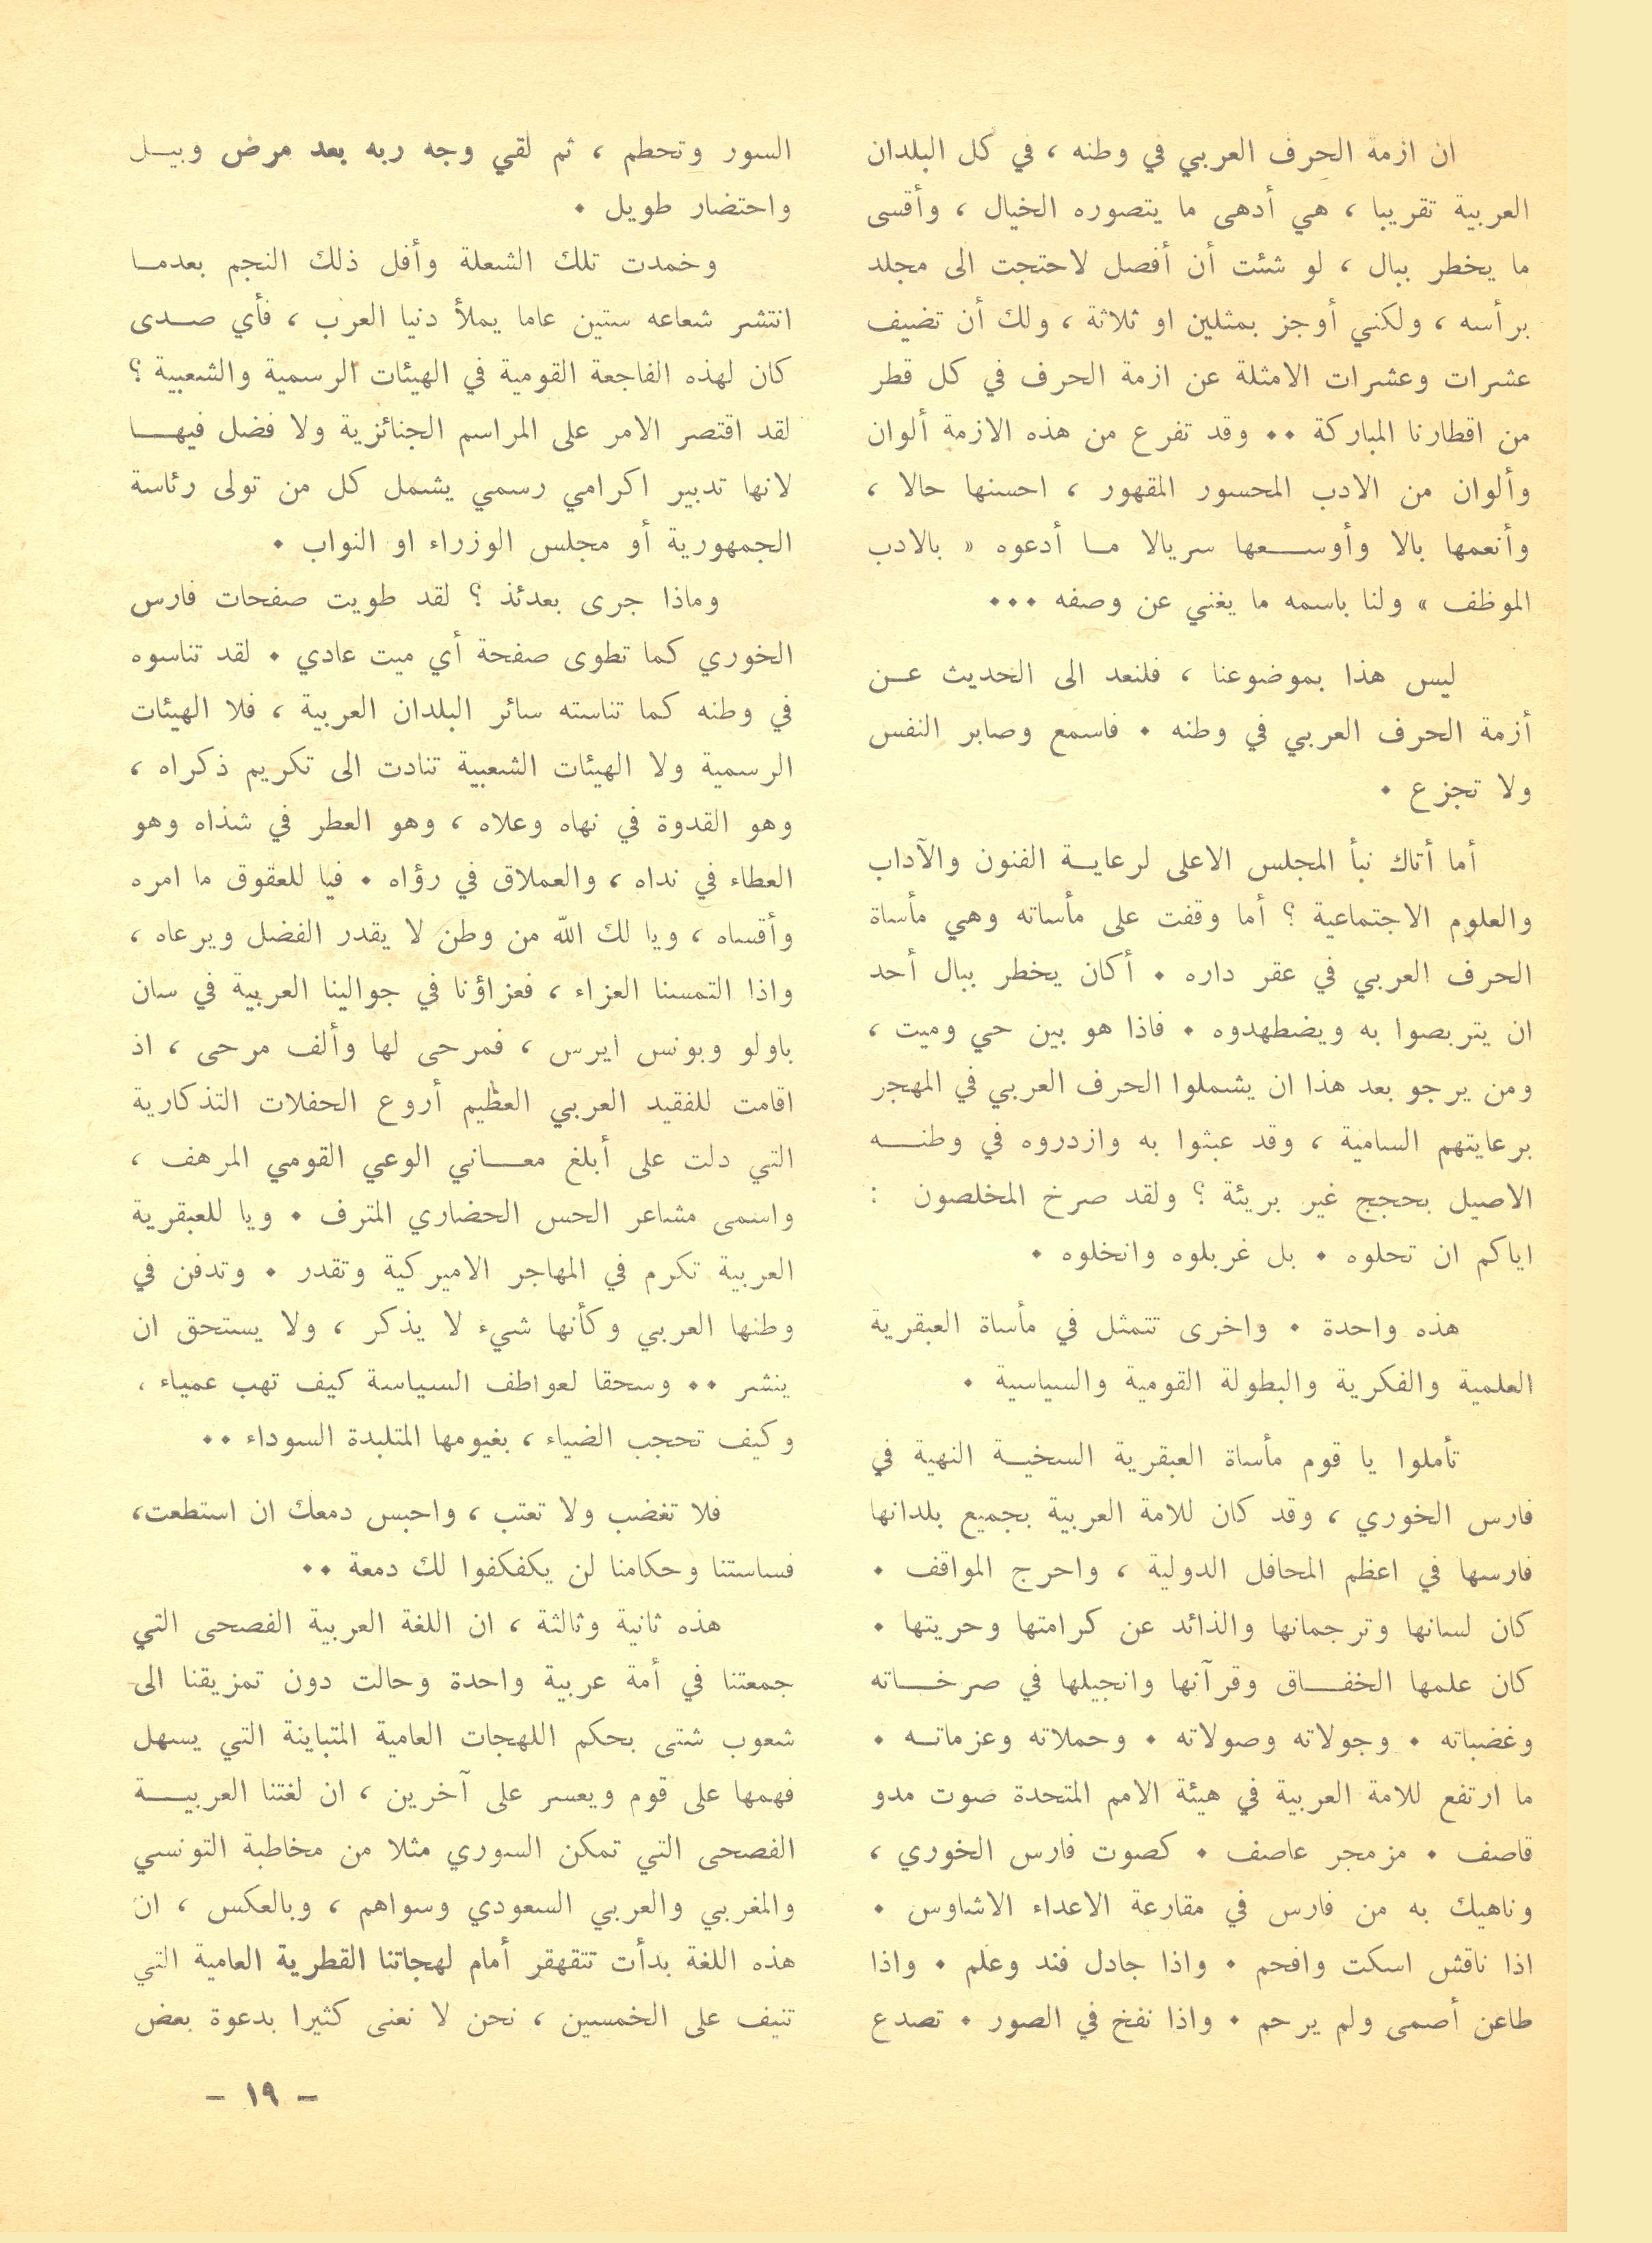 ان ازمة الحرف العربي في وطنه ، في كل البلدان
العربية تقريبا ، هي أدهى ما يتصوره الخيال ، وأقسى
ما يخطر ببال ، لو شئت أن أفصل لاحتجت الى مجلد
برأسه ، ولكني أوجز بمثلين او ثلاثة ، ولك أن تضيف
عشرات وعشرات الامثلة عن ازمة الحرف في كل قطر
من اقطارنا المباركة •• وقد تفرع من هذه الازمة ألوان
وألوان من الادب المحسور المقهور ، احسنها حالا ،
وأنعمها بالا وأوسعها سربالا ما أدعوه « بالادب
الموظف » ولنا باسمه ما يغني عن وصفه •••
ليس هذا بموضوعنا ، فلنعد الى الحديث عن
أزمة الحرف العربي في وطنه • فاسمع وصابر النفس
ولا تجزع •
أما أتاك نبأ المجلس الاعلى لرعاية الفنون والآداب
والعلوم الاجتماعية ؟ أما وقفت على مأساته وهي مأساة
الحرف العربي في عقر داره • أكان يخطر ببال أحد
ان يتربصوا به ويضطهدوه • فاذا هو بين حي وميت ،
ومن يرجو بعد هذا ان يشملوا الحرف العربي في المهجر
برعايتهم السامية ، وقد عبثوا به وازدروه في وطنه
الاصيل بحجج غير بريئة ؟ ولقد صرخ المخلصون :
اياكم ان تحلوه • بل غربلوه وانخلوه •
هذه واحدة • واخرى تتمثل في مأساة العبقرية
العلمية والفكرية والبطولة القومية والسياسية •
تأملوا يا قوم مأساة العبقرية السخية النهية في
فارس الخوري ، وقد كان للامة العربية بجميع بلدانها
فارسها في اعظم المحافل الدولية ، واحرج المواقف •
كان لسانها وترجمانها والذائد عن كرامتها وحريتها •
كان علمها الخفاق وقرآنها وانجيلها في صرخاته
وغضباته • وجولاته وصولاته • وحملاته وعزماته •
ما ارتفع للامة العربية في هيئة الامم المتحدة صوت مدو
قاصف • مزمجر عاصف • كصوت فارس الخوري ،
وناهيك به من فارس في مقارعة الاعداء الاشاوس •
اذا ناقش اسكت وافحم • واذا جادل فند وعلم • واذا
طاعن أصمى ولم يرحم • واذا نفخ في الصور • تصدع
السور وتحطم ، ثم لقي وجه ربه بعد مرض وبيل
واحتضار طويل •
وخمدت تلك الشعلة وأفل ذلك النجم بعدما
انتشر شعاعه ستين عاما يملأ دنيا العرب ، فأي صدى
كان لهذه الفاجعة القومية في الهيئات الرسمية والشعبية ؟
لقد اقتصر الامر على المراسم الجنائزية ولا فضل فيها
لانها تدبير اكرامي رسمي يشمل كل من تولى رئاسة
الجمهورية أو مجلس الوزراء او النواب •
وماذا جرى بعدئذ ؟ لقد طويت صفحات فارس
الخوري كما تطوى صفحة أي ميت عادي • لقد تناسوه
في وطنه كما تناسته سائر البلدان العربية ، فلا الهيئات
الرسمية ولا الهيئات الشعبية تنادت الى تكريم ذكراه ،
وهو القدوة في نهاه وعلاه ، وهو العطر في شذاه وهو
العطاء في نداه ، والعملاق في رؤاه • فيا للعقوق ما امره
وأقساه ، ويا لك الله من وطن لا يقدر الفضل ويرعاه ،
واذا التمسنا العزاء ، فعزاؤنا في جوالينا العربية في سان
باولو وبونس ايرس ، فمرحى لها وألف مرحى ، اذ
اقامت للفقيد العربي العظيم أروع الحفلات التذكارية
التي دلت على أبلغ معاني الوعي القومي المرهف ،
واسمى مشاعر الحس الحضاري المترف • ويا للعبقرية
العربية تكرم في المهاجر الاميركية وتقدر • وتدفن في
وطنها العربي وكأنها شيء لا يذكر ، ولا يستحق ان
ينشر •• وسحقا لعواطف السياسة كيف تهب عمياء ،
وكيف تحجب الضياء ، بغيومها المتلبدة السوداء ••
فلا تغضب ولا تعتب ، واحبس دمعك ان استطعت،
فساستنا وحكامنا لن يكفكفوا لك دمعة ••
هذه ثانية وثالثة ، ان اللغة العربية الفصحى التي
جمعتنا في أمة عربية واحدة وحالت دون تمزيقنا الى
شعوب شتى بحكم اللهجات العامية المتباينة التي يسهل
فهمها على قوم ويعسر على آخرين ، ان لغتنا العربية
الفصحى التي تمكن السوري مثلا من مخاطبة التونسي
والمغربي والعربي السعودي وسواهم ، وبالعكس ، ان
هذه اللغة بدأت تتقهقر أمام لهجاتنا القطرية العامية التي
تنيف على الخمسين ، نحن لا نعنى كثيرا بدعوة بعض
– ١٩ –